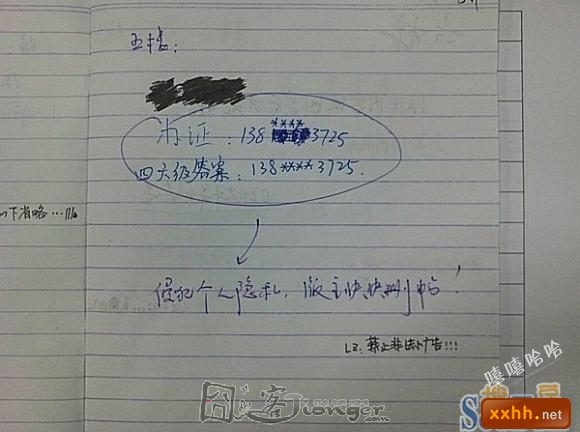 五楼：
办证：138****3725
四六级答案：138****3725.
以下省略…
侵犯个人隐私，版主快快删帖！
LZ：禁止非法广告!!!
嘻嘻哈哈
囧客
Jionger.com
xxhh.net